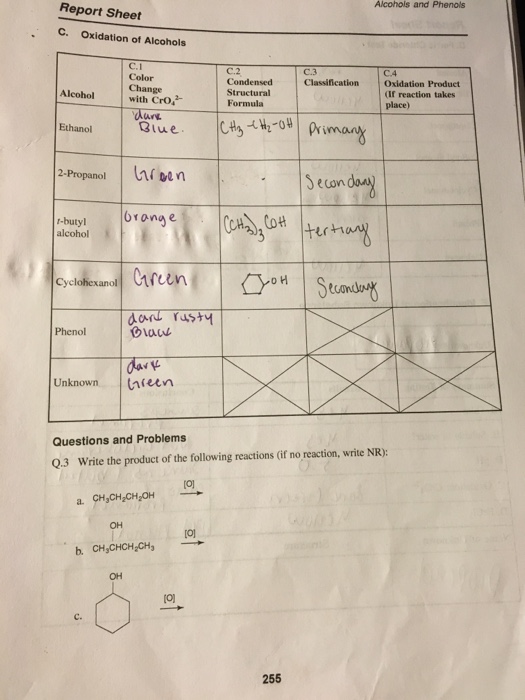 Report Sheet
Alcohols and Phenols
C. Oxidation of Alcohols
Alcohol
C.1 Color Change with CrO₄²⁻
C.2 Condensed Structural Formula
C.3 Classification
C.4 Oxidation Product (If reaction takes place)
Ethanol
dark Blue.
CH₃-CH₂-OH
Primary
2-Propanol
Green
Secondary
t-butyl alcohol
Orange
(CH₃)₃COH
tertiary
Cyclohexanol
Green
OH
Secondary
Phenol
dark rusty
Unknown
dark Green
Questions and Problems
Q.3 Write the product of the following reactions (if no reaction, write NR):
a. CH₃CH₂CH₂OH [O]
OH
b. CH₃CHCH₂CH₃ [O]
OH
c. [O]
255